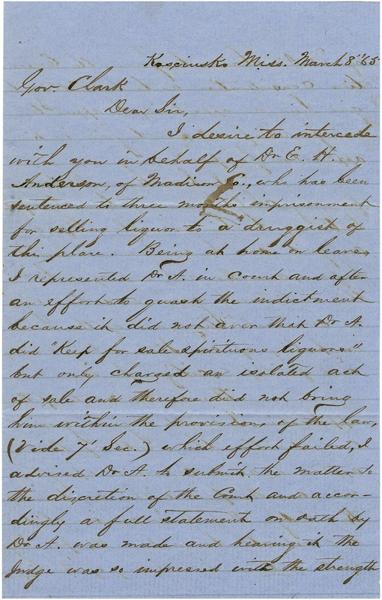 Kosciusko Miss. March 8" 65
Gov. Clark
Dear Sir,
I desire to intercede
with you in behalf of Dr E. H.
Anderson, of Madison Co., who has been
sentenced to three months imprisonment
for selling liquor to a druggist of
this place. Being at home on leave,
I represented Dr A. in Court and after
an effort to quash the indictment
because it did not aver that Dr A.
did "Keep for sale spirituous liquors"
but only charged an isolated act
of sale and therefore did not bring
him within the provisions of the law,
(Vide 7' Sec.) which effort failed, I
advised Dr A. to submit the matter to
the discretion of the Court and accor-
dingly a full statement on oath by
Dr A. was made and hearing it the
Judge was so impressed with the strength